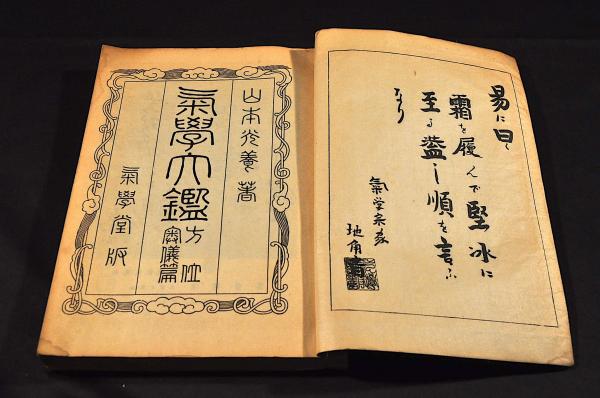 易に曰く
霜を履んで堅冰に
至る蓋し順を言ふ
なり
氣学宗家
地角
山本光養著
氣學大鑑
方位
奧儀篇
氣學堂版